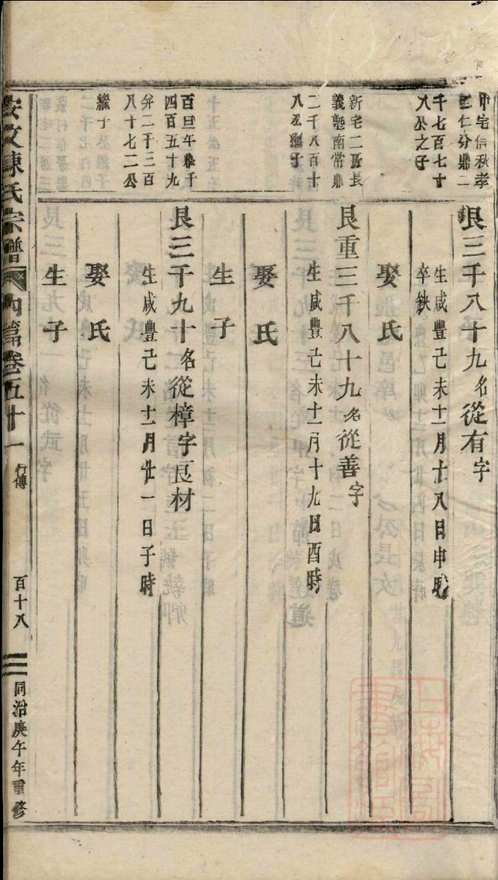 中宅信秋孝
仁分鼎二
千七百七十
八公之子
艮三千八十九名從有字
生咸豐己未十一月十八日申時
卒缺
娶氏
新宅二區長
義塾南常鼎
二千八百十
八公繼子
艮重三千八十九名從善字
生咸豐己未十一月十九日酉時
娶氏
生子
百四午鼎千
四百五十九
弁二千三百
八十七二公
繼子
艮三千九十名從樟字良材
生咸豐己未十一月廿一日子時
娶氏
生子
安文陳氏宗譜
內篇卷五十一
行傳
百十八
同治庚午年重修